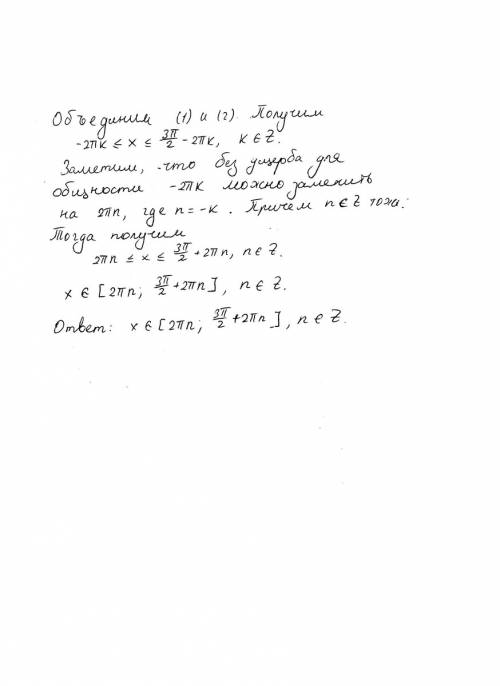 Объединим (1) и (2). Получим
-2πk ≤ x ≤ 3π/2 - 2πk, k ∈ Z.
Заметим, что без ущерба для
общности -2πk можно заменить
на 2πn, где n = -k. Причем n ∈ Z тоже.
Тогда получим
2πn ≤ x ≤ 3π/2 + 2πn, n ∈ Z.
x ∈ [2πn; 3π/2 + 2πn], n ∈ Z.
Ответ: x ∈ [2πn; 3π/2 + 2πn], n ∈ Z.